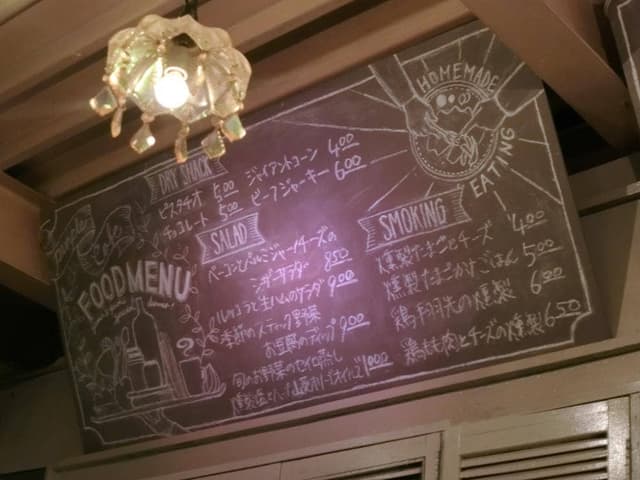 FOOD MENU
DRY SNACK
ピスタチオ 500
チョコレート 500
ジャイアントコーン 400
ビーフジャーキー 600
SALAD
ベーコンと
850
ルッコラと生ハムのサラダ 900
季節のスティック野菜
お豆腐のディップ 900
旬のお野菜のセイロ蒸し
1000
SMOKING
燻製たまごとチーズ 400
燻製たまごかけごはん 500
鶏手羽先の燻製 600
鶏もも肉とチーズの燻製 650
HOMEMADE
EATING